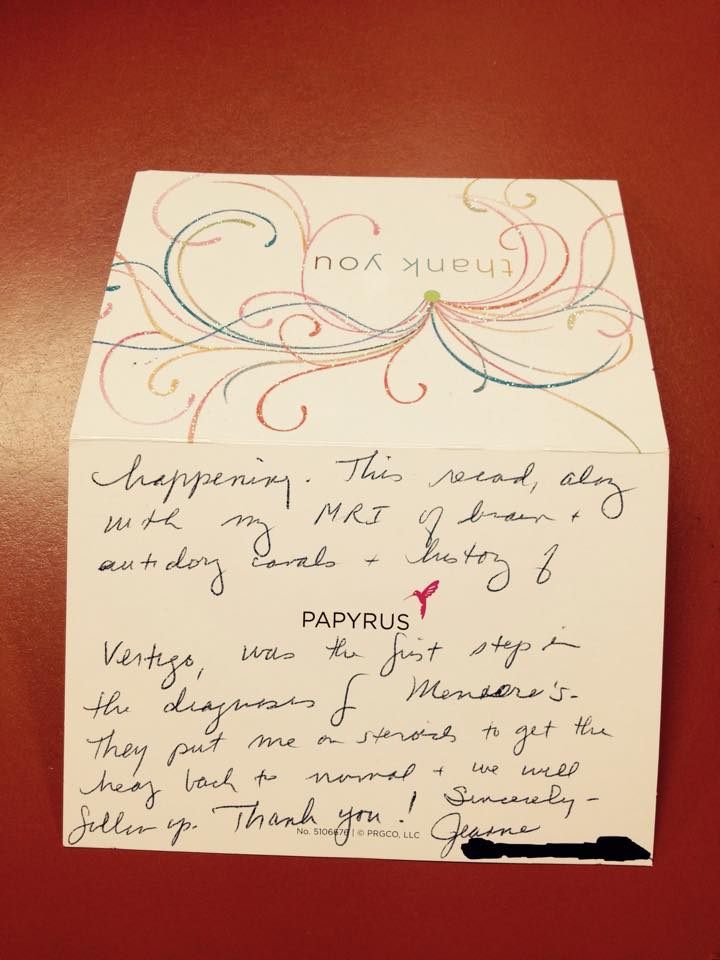 thank you
happening. This record, along
with my MRI of brain +
auditory canals + history of
PAPYRUS
Vertigo, was the first step in
the diagnosis of Meniere's-
They put me on steroids to get the
back to normal + we will
follow up. Thank you! Sincerely-
Jeanne
No. 5106676 | © PRGCO, LLC